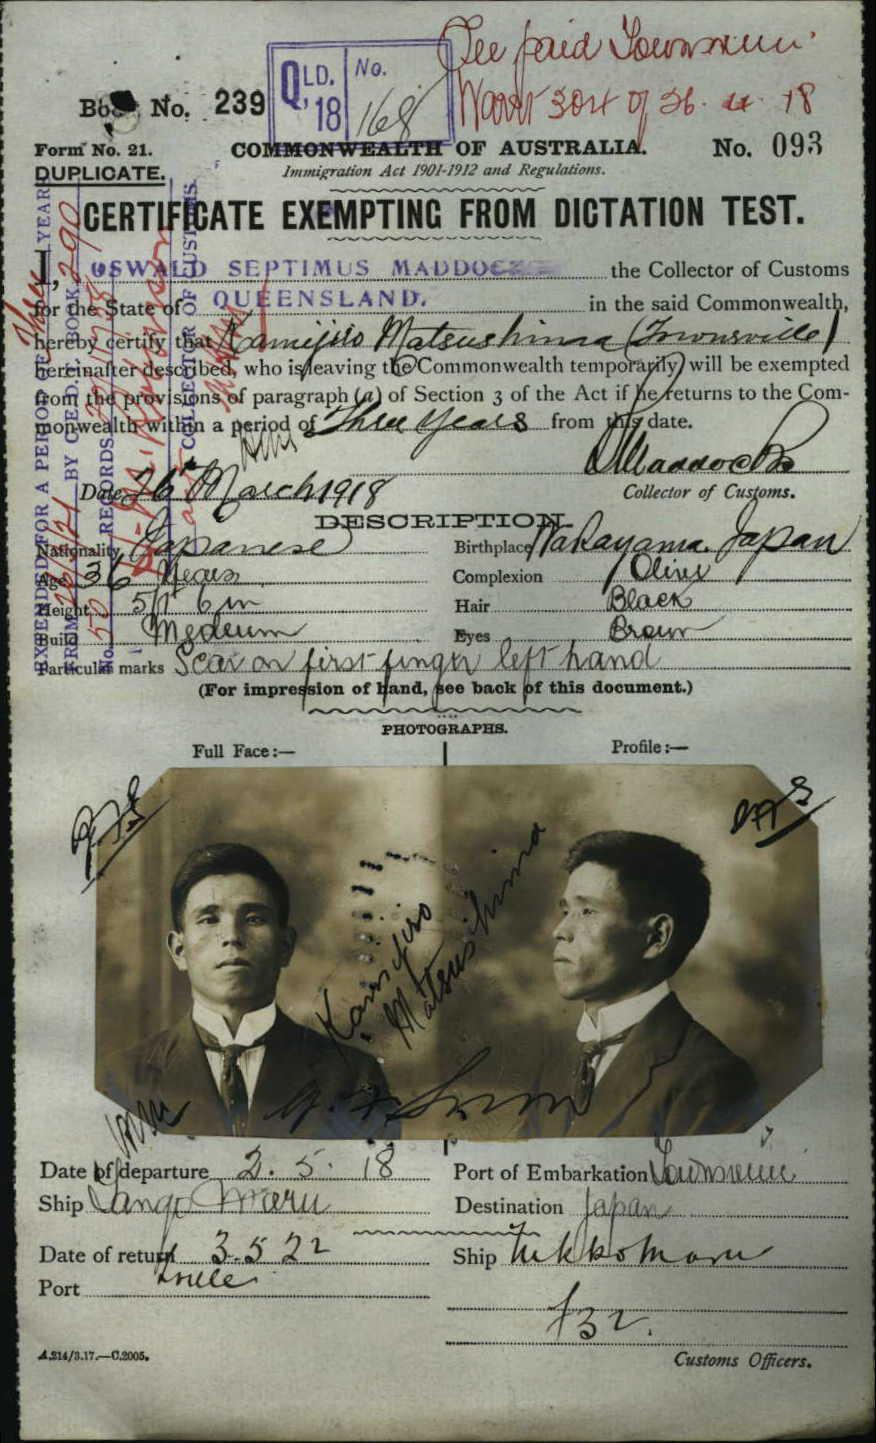 Fee paid Townsville
Warrt 304 of 26. 4. 18
QLD. No.
'18 168
Book No. 239
Form No. 21. COMMONWEALTH OF AUSTRALIA. No. 093
DUPLICATE. Immigration Act 1901-1912 and Regulations.
CERTIFICATE EXEMPTING FROM DICTATION TEST.
I, OSWALD SEPTIMUS MADDOCKS the Collector of Customs
for the State of QUEENSLAND. in the said Commonwealth,
hereby certify that Kamijiro Matsushima (Townsville)
hereinafter described, who is leaving the Commonwealth temporarily will be exempted
from the provisions of paragraph (a) of Section 3 of the Act if he returns to the Com-
monwealth within a period of Three Years from this date.
OSMaddocks
Date 26th March 1918 Collector of Customs.
EXTENDED FOR A PERIOD OF Three YEARS
FROM BY C'T'E'D.T. BOOK 290
No. 50 RECORDS
COLLECTOR OF CUSTOMS.
DESCRIPTION
Nationality Japanese Birthplace Wakayama. Japan
Age 36 Years Complexion Olive
Height 5ft 6in Hair Black
Build Medium Eyes Brown
Particular marks Scar on first finger left hand
(For impression of hand, see back of this document.)
PHOTOGRAPHS.
Full Face:— Profile:—
Kamijiro
Matsushima
Date of departure 2. 5. 18 Port of Embarkation Townsville
Ship Tango Maru Destination Japan
Date of return 3.5 22 Ship Nikko Maru
Port Tville
A.214/3.17.—C.2005. Customs Officers.